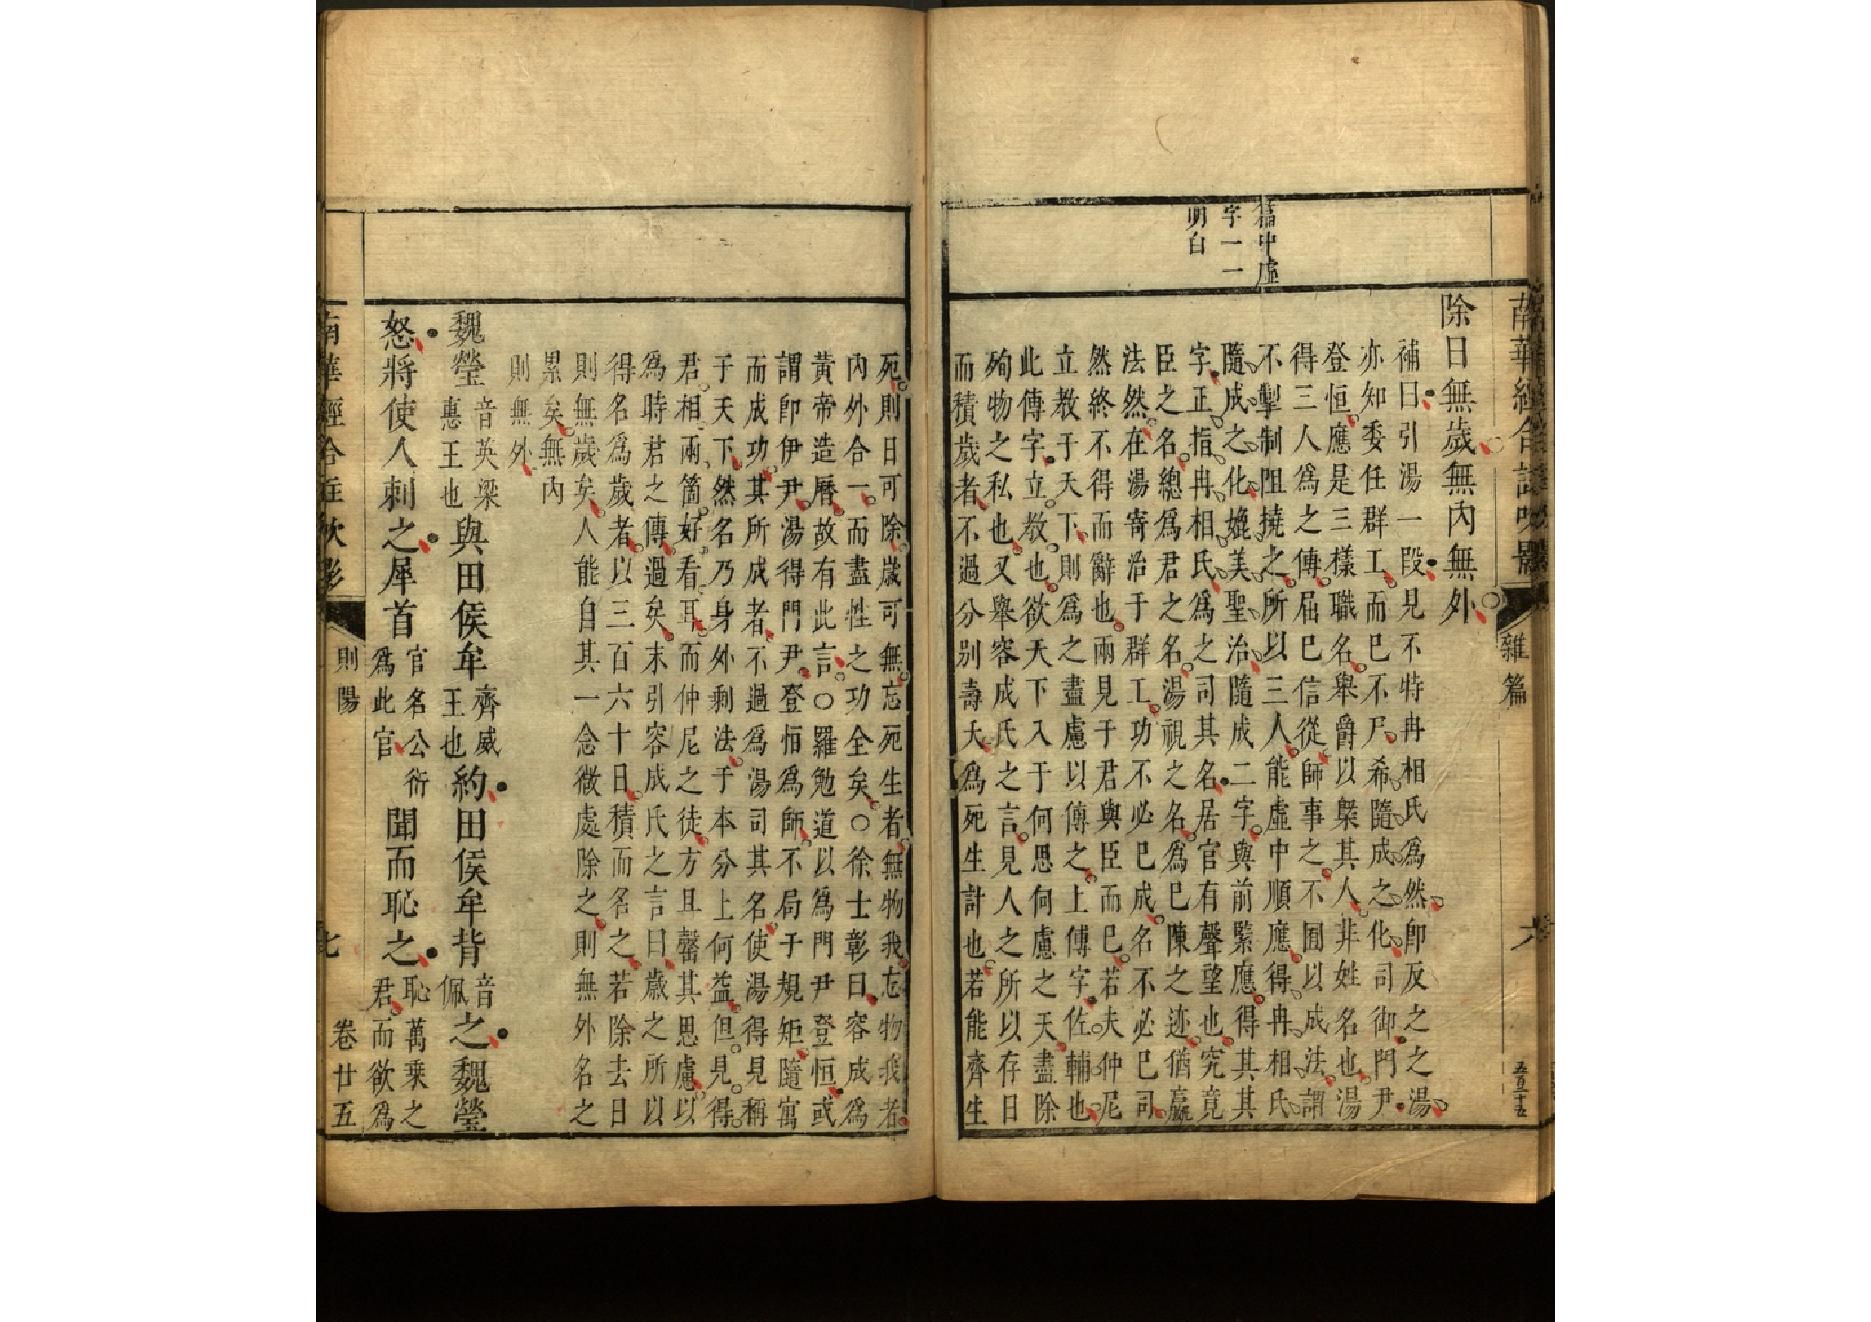 南華經合註吹影
雜篇
六
五百三十五
描中虛
字一一
明白
除日無歲無內無外
補曰引湯一段見不特冉相氏爲然卽反之之湯
亦知委任群工而已不尸希隨成之化司御門尹
登恒應是三樣職名舉爵以槩其人非姓名也湯
得三人爲之傳屈已信從師事之不囿以成法謂
不掣制阻撓之所以三人能虛中順應得冉相氏
隨成之化媲美聖治隨成二字與前緊應得其其
字正指冉相氏爲之司其名居官有聲望也究竟
臣之名總爲君之名湯視之名爲已陳之迹猶贏
法然在湯寄治于群工功不必已成名不必已司
然終不得而辭也兩見于君與臣而已若夫仲尼
立教于天下則爲之盡慮以傅之上傅字佐輔也
此傅字立教也欲天下入于何思何慮之天盡除
殉物之私也又舉容成氏之言見人之所以存日
而積歲者不過分別壽夭爲死生計也若能齊生
死則日可除歲可無忘死生者無物我忘物我者
內外合一而盡性之功全矣○徐士彰曰容成爲
黃帝造曆故有此言○羅勉道以爲門尹登恒或
謂卽伊尹湯得門尹登恒爲師不局于規矩隨寓
而成功其所成者不過爲湯司其名使湯得見稱
于天下然名乃身外剩法于本分上何益但見得
君相兩箇好看耳而仲尼之徒方且罄其思慮以
爲時君之傅過矣末引容成氏之言曰歲之所以
得名爲歲者以三百六十日積而名之若除去日
則無歲矣人能自其一念微處除之則無外名之
累矣無內
則無外
魏瑩音英梁惠王也與田侯牟齊威王也約田侯牟背音佩之魏瑩
怒將使人刺之犀首官名公衍爲此官聞而恥之恥萬乘之君而欲爲
南華經合註吹影
則陽
七
卷廿五